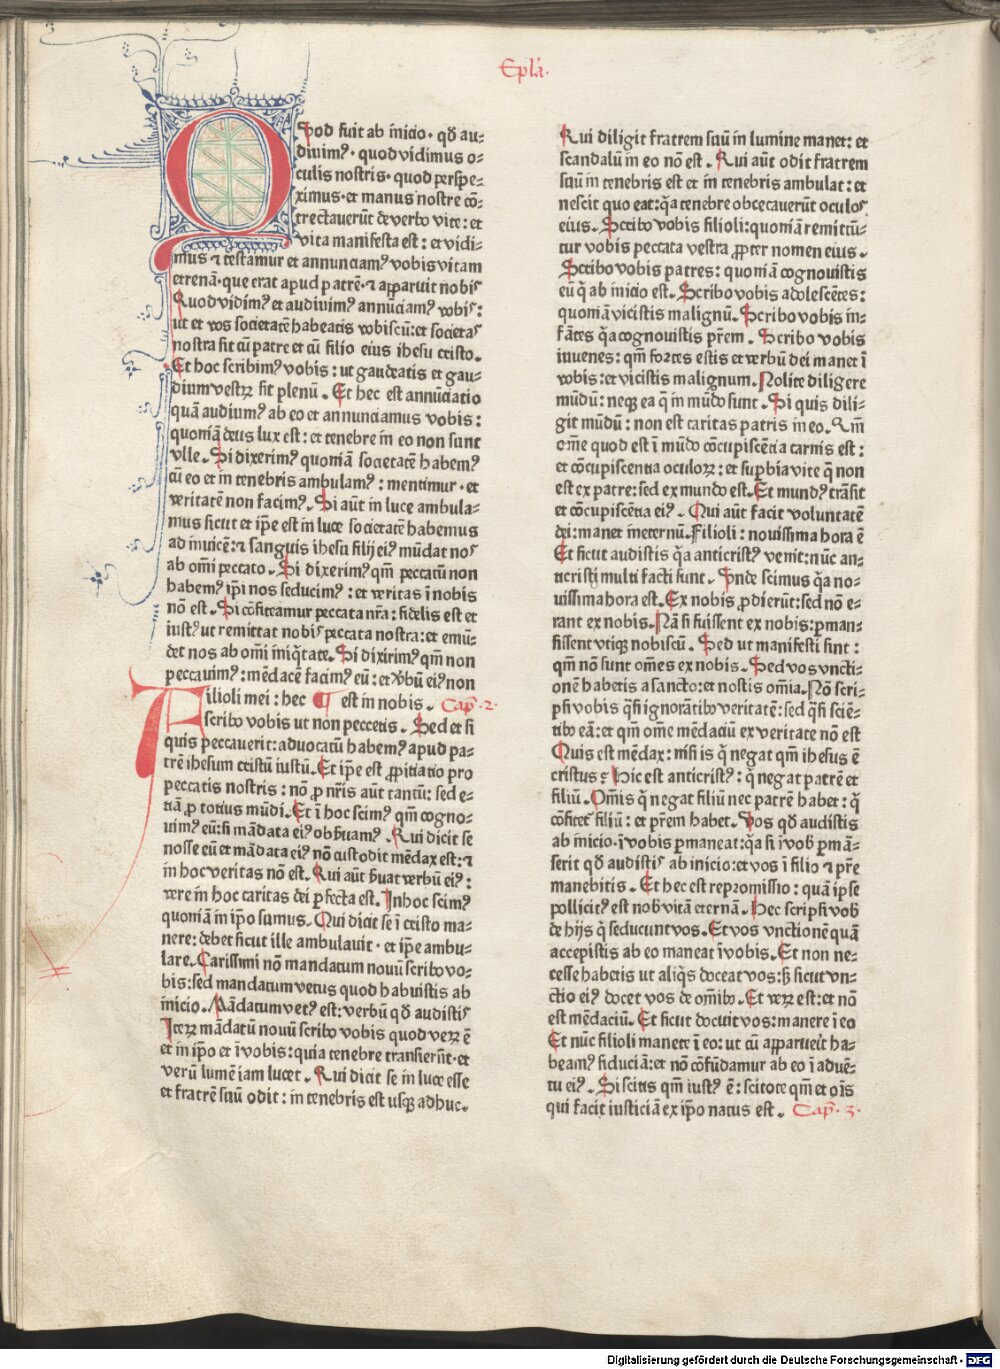 Epl'a.
Quod fuit ab inicio. qđ au-
diuimꝰ. quod vidimus o-
culis nostris. quod perspe-
ximus. et manus nostre cō-
trectauerūt de verbo vite: et
vita manifesta est: et vidi-
mus ⁊ testamur et annunciamꝰ vobis vitam
eternā. que erat apud patrē. ⁊ apparuit nobis
Quod vidimꝰ et audiuimꝰ annūciamꝰ vobis:
ut et vos societatē habeatis vobiscū: et societas
nostra sit cū patre et cū filio eius ihesu cristo.
Et hoc scribimꝰ vobis: ut gaudeatis et gau-
dium vestrꝝ sit plenū. Et hec est annūciatio
quā audiuimꝰ ab eo et annunciamus vobis:
quoniā deus lux est: et tenebre in eo non sunt
vlle. Si dixerimꝰ quoniā societatē habemꝰ
cū eo et in tenebris ambulamꝰ: mentimur. et
veritatē non facimꝰ. Si aūt in luce ambula-
mus sicut et ip̄e est in luce societatē habemus
ad inuicē: ⁊ sanguis ihesu filij eiꝰ mūdat nos
ab om̄i peccato. Si dixerimꝰ qm̄ peccatū non
habemꝰ ip̄i nos seducimꝰ: et veritas ī nobis
nō est. Si cōfiteamur peccata nr̄a: fidelis est et
iustꝰ ut remittat nobis peccata nostra: et emū-
det nos ab om̄i iniq̄tate. Si dixirimꝰ qm̄ non
peccauimꝰ: mēdacē facimꝰ eū: et v̄bū eiꝰ non
Filioli mei: hec ¶ est in nobis. Cap̄. 2.
scribo vobis ut non peccetis. Sed et si
quis peccauerit: aduocatū habemꝰ apud pa-
trē ihesum cristū iustū. Et ip̄e est ꝓpitiatio pro
peccatis nostris: nō ꝓ nr̄is aūt tantū: sed e-
tiā ꝓ totius mūdi. Et ī hoc scimꝰ qm̄ cogno-
uimꝰ eū: si mādata eiꝰ obẜuamꝰ. Qui dicit se
nosse eū et mādata eiꝰ nō custodit mēdax est: ⁊
in hoc veritas nō est. Qui aūt ẜuat verbū eiꝰ:
vere in hoc caritas dei ꝑfecta est. In hoc scimꝰ
quoniā in ip̄o sumus. Qui dicit se ī cristo ma-
nere: debet sicut ille ambulauit. et ip̄e ambu-
lare. Carissimi nō mandatum nouū scribo vo-
bis: sed mandatum vetus quod habuistis ab
inicio. Mādatum vetꝰ est: verbū qđ audistis
Iterꝝ mādatū nouū scribo vobis quod verꝝ ē
et in ip̄o et ī vobis: quia tenebre transierūt. et
verū lumē iam lucet. Qui dicit se in luce esse
et fratrē suū odit: in tenebris est usqꝫ adhuc.
Qui diligit fratrem suū in lumine manet: et
scandalū in eo nō est. Qui aūt odit fratrem
suū in tenebris est et in tenebris ambulat: et
nescit quo eat: q̄a tenebre obcecauerūt oculos
eius. Scribo vobis filioli: quoniā remittū-
tur vobis peccata vestra ꝓpter nomen eius.
Scribo vobis patres: quoniā cognouistis
eū q̄ ab inicio est. Scribo vobis adolescētes:
quoniā vicistis malignū. Scribo vobis in-
fātes q̄a cognouistis pr̄em. Scribo vobis
iuuenes: qm̄ fortes estis et verbū dei manet ī
vobis: et vicistis malignum. Nolite diligere
mūdū: neqꝫ ea q̄ in mūdo sunt. Si quis dili-
git mūdū: non est caritas patris in eo. Qm̄
om̄e quod est ī mūdo cōcupiscētia carnis est:
et cōcupiscentia oculoꝝ: et supbia vite q̄ non
est ex patre: sed ex mundo est. Et mundꝰ trāsit
et cōcupiscētia eiꝰ. Qui aūt facit voluntatē
dei: manet in eternū. Filioli: nouissima hora ē
Et sicut audistis q̄a anticristꝰ venit: nūc an-
ticristi multi facti sunt. Unde scimus q̄a no-
uissima hora est. Ex nobis ꝓdierūt: sed nō e-
rant ex nobis. Nā si fuissent ex nobis: ꝑman-
sissent vtiqꝫ nobiscū. Sed ut manifesti sint:
qm̄ nō sunt om̄es ex nobis. Sed vos vncti-
onē habetis a sancto: et nostis om̄ia. Nō scri-
psi vobis q̄si ignorātibꝰ veritatē: sed q̄si sciē-
tibꝰ eā: et qm̄ om̄e mēdaciū ex veritate nō est
Quis est mēdax: nisi is q̄ negat qm̄ ihesus ē
cristus? Hic est anticristꝰ: q̄ negat patrē et
filiū. Om̄is q̄ negat filiū nec patrē habet: q̄
cōfitet᷑ filiū: et pr̄em habet. Vos qđ audistis
ab inicio. ī vobis ꝑmaneat: q̄a si ī vob̄ ꝑmā-
serit qđ audistis ab inicio: et vos ī filio ⁊ pr̄e
manebitis. Et hec est repromissio: quā ipse
pollicitꝰ est nob̄ vitā eternā. Hec scripsi vob̄
de hijs q̄ seducunt vos. Et vos vnctionē quā
accepistis ab eo maneat ī vobis. Et non ne-
cesse habetis ut aliq̄s doceat vos: sꝫ sicut vn-
ctio eiꝰ docet vos de om̄ibꝰ. Et verꝝ est: et nō
est mēdaciū. Et sicut docuit vos: manere ī eo
Et nūc filioli manete ī eo: ut cū apparuerit ha-
beamꝰ fiduciā: et nō cōfūdamur ab eo ī aduē-
tu eiꝰ. Si scitis qm̄ iustꝰ ē: scitote qm̄ et oīs
qui facit iusticiā ex ip̄o natus est. Cap̄. 3.
Digitalisierung gefördert durch die Deutsche Forschungsgemeinschaft - DFG